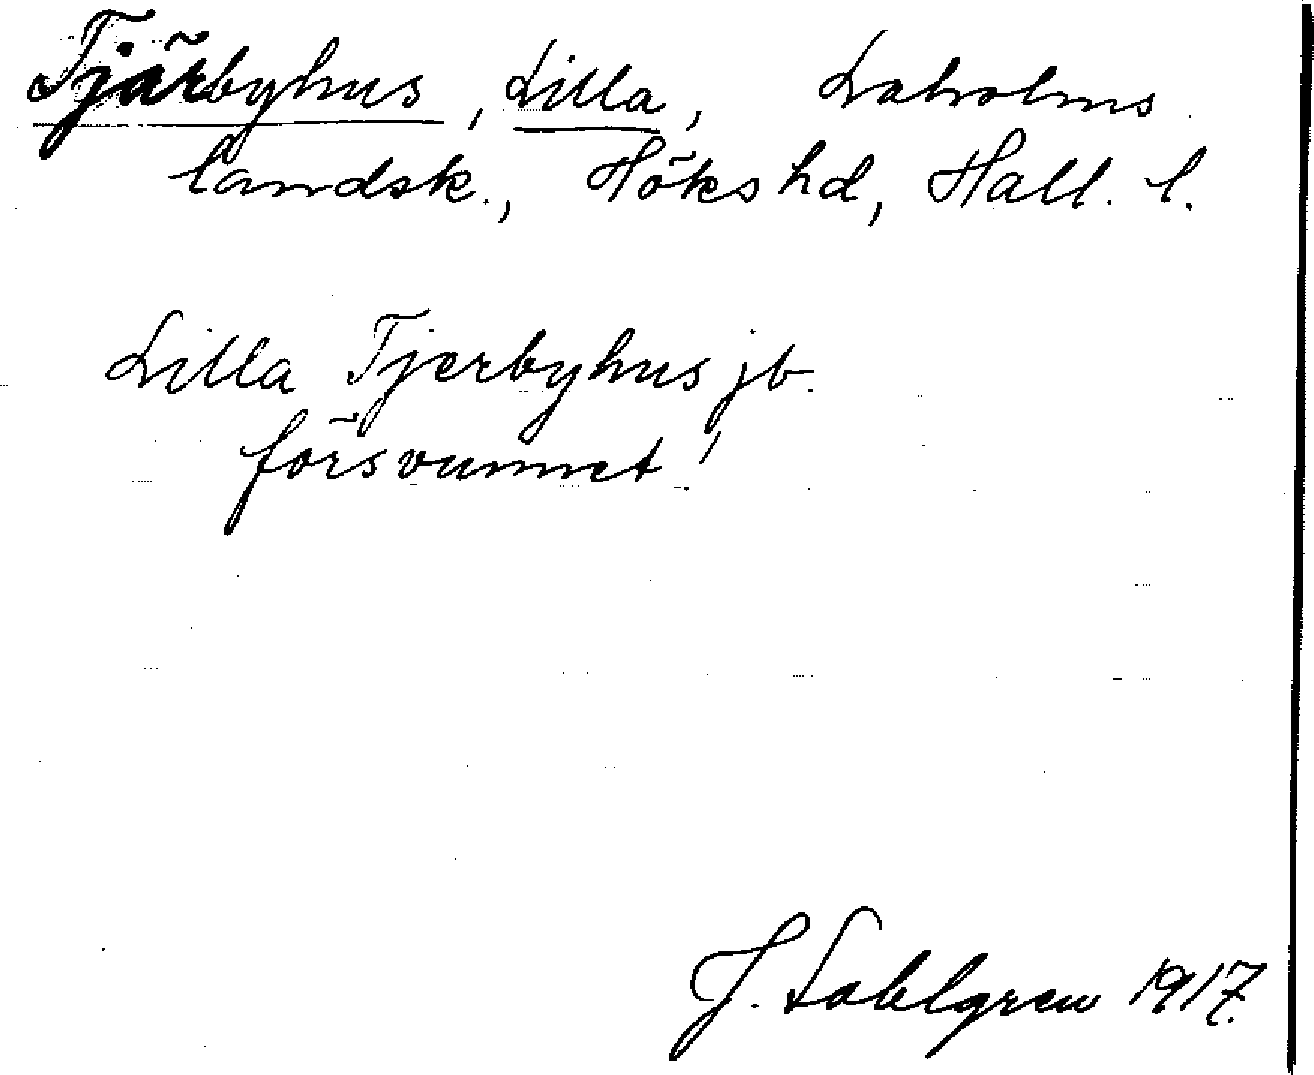 Tjärbyhus, Lilla, Laholms
landsk., Höks hd, Hall. l.
Lilla Tjerbyhus jb.
försvunnet!
J. Sahlgren 1917.